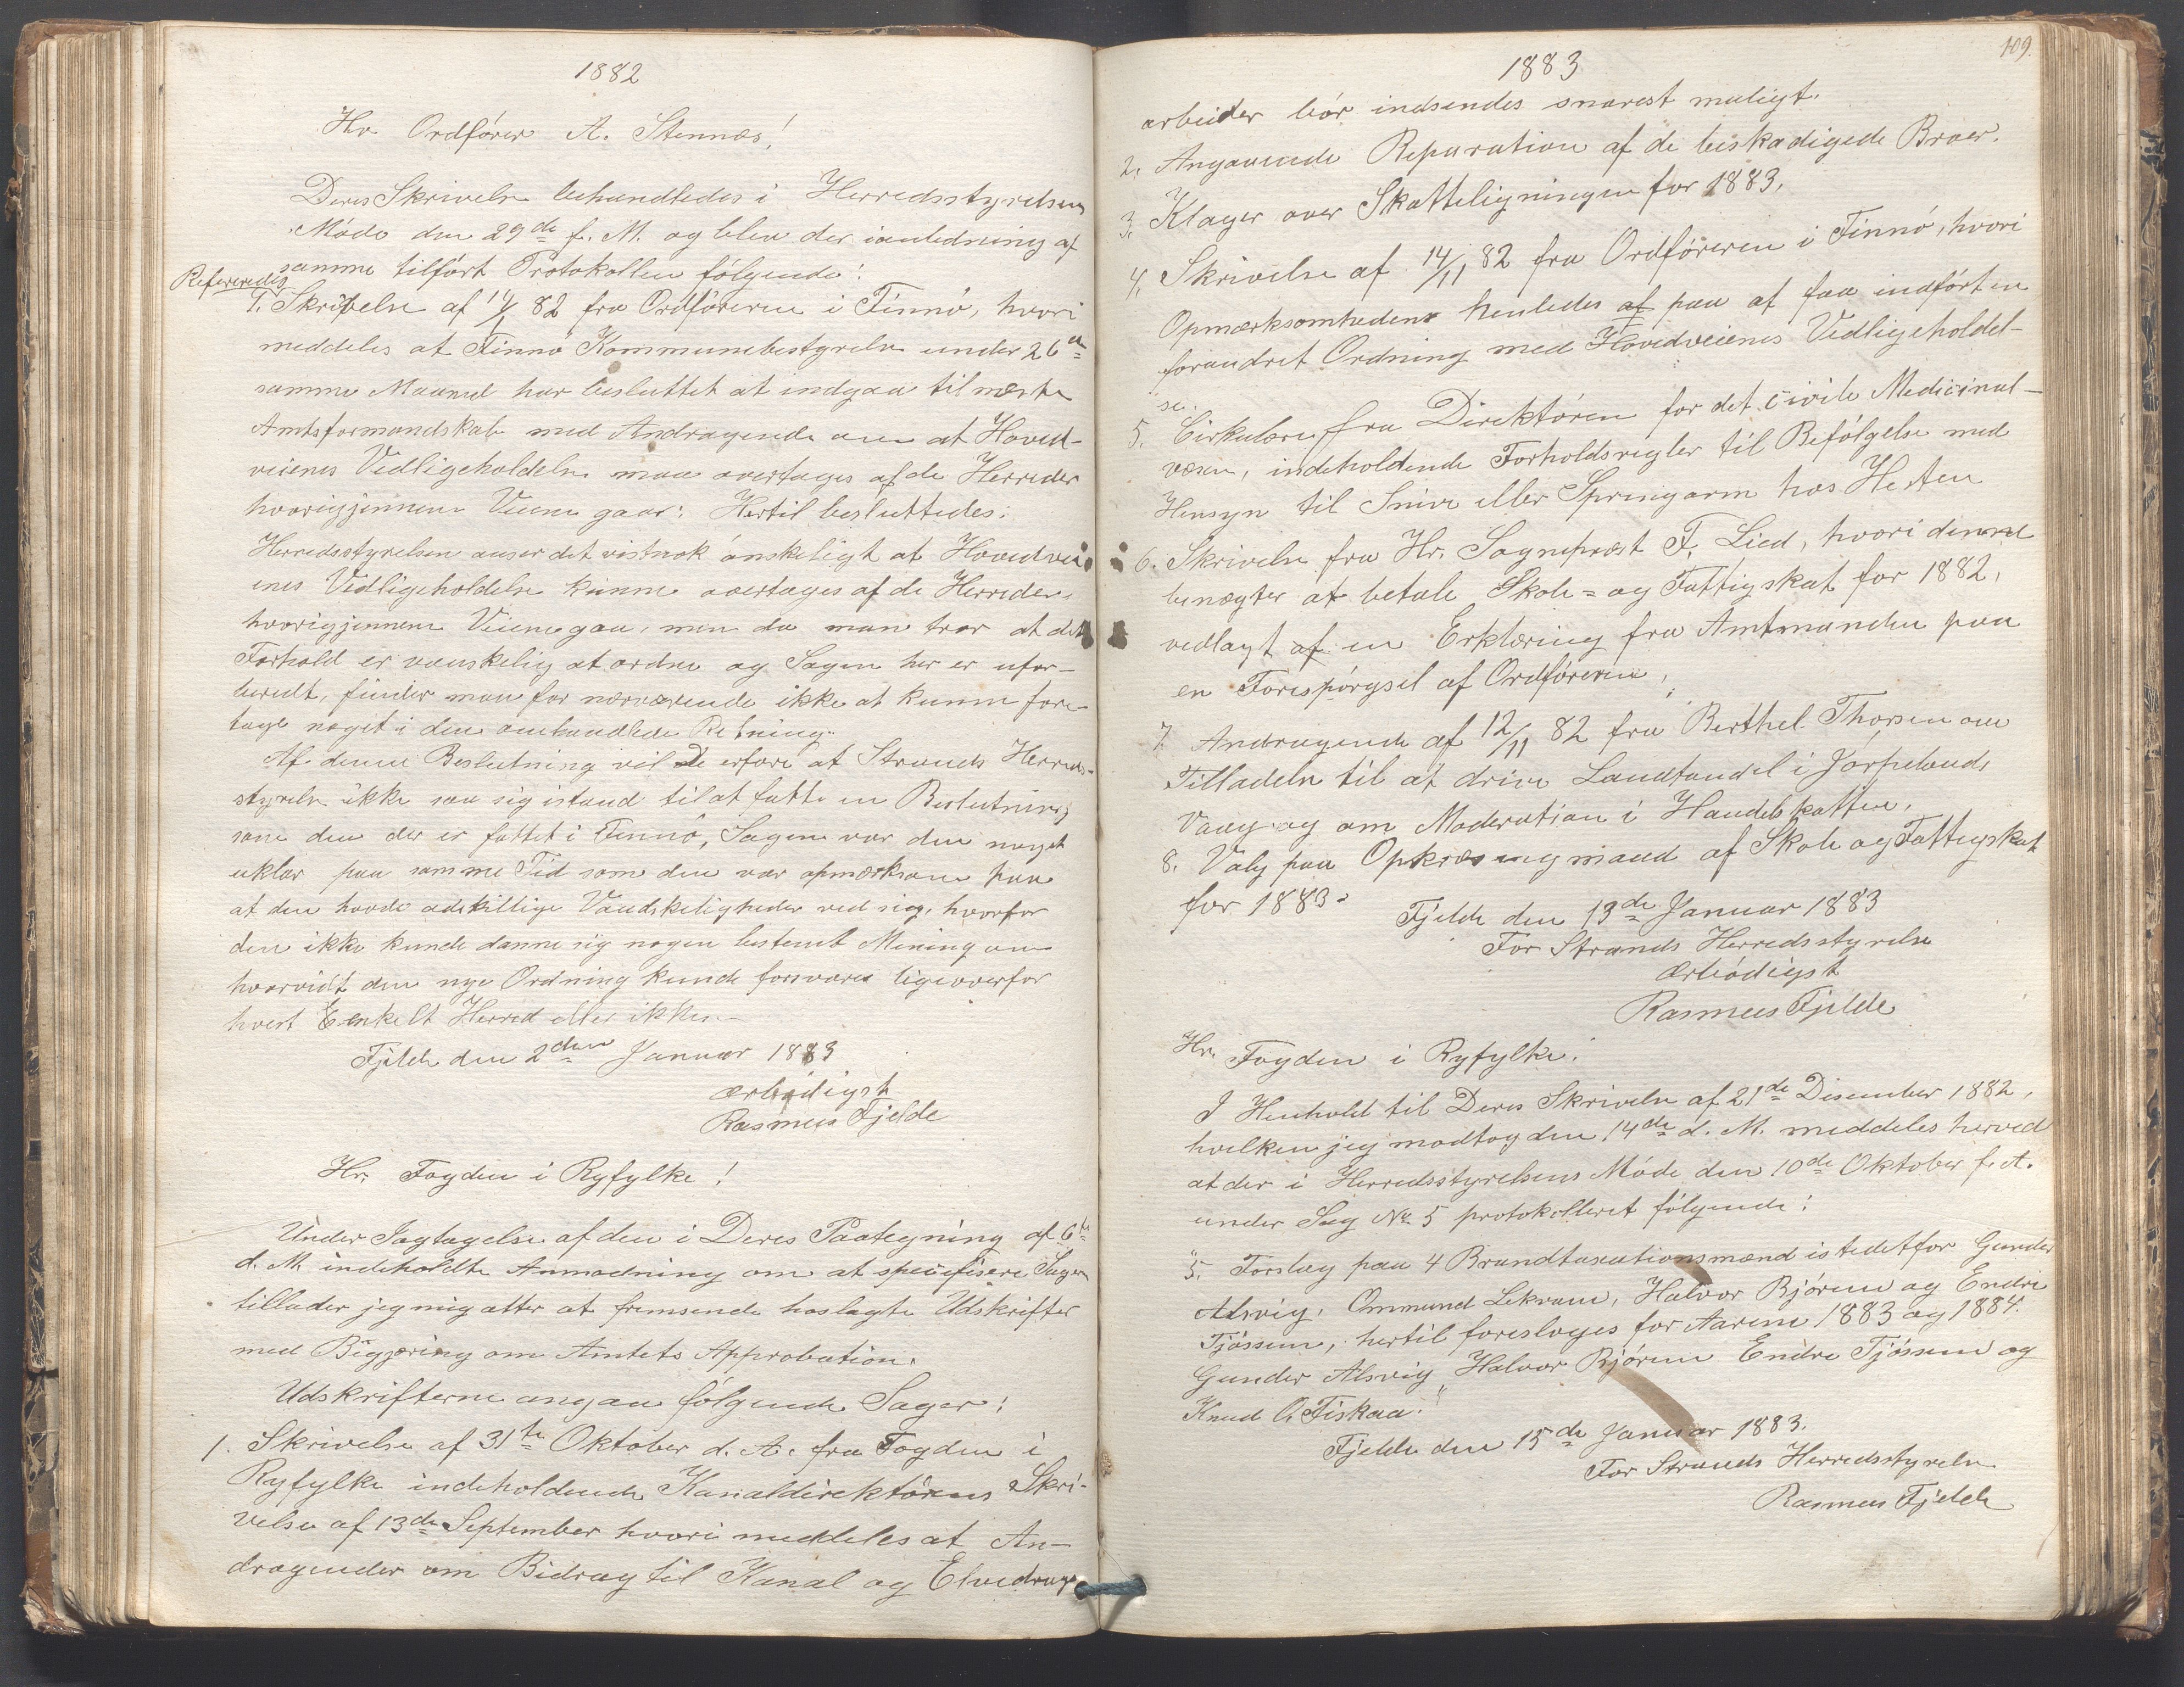 1882
Hr. Ordfører A. Stennæs!
Deres Skrivelse behandledes i Herredsstyrelsens
Møde den 29de f. M. og blev der ianledning af
samme tilført Protokollen følgende:
Refereredes
1. Skrivelse af 14/1 82 fra Ordføreren i Finnø, hvori
meddeles at Finnø Kommunebestyrelse under 26de
samme Maaned har besluttet at indgaa til næste
Amtsformandskab med Andragende om at Hoved-
veienes Vedligeholdelse maa overtages af de Herreder
hvorigjennem Veiene gaar: Hertil besluttedes:
Herredsstyrelsen anser det vistnok ønskeligt at Hovedvei
enes Vedligeholdelse kunne overtages af de Herreder
hvorigjennem Veiene gaa, men da man tror at det
Forhold er vanskelig at ordne og Sagen her er ufor-
beredt, finder man for nærværende ikke at kunne fore-
tage noget i den omhandlede Retning.
Af denne Beslutning vil De erfare at Strands Herreds-
styrelse ikke saa sig istand til at fatte en Beslutning
som den der er fattet i Finnø, Sagen var den noget
uklar paa samme Tid som den var opmærksom paa
at den havde adskillige Vandskeligheder ved sig, hvorfor
den ikke kunde danne sig nogen bestemt Mening om
hvorvidt den nye Ordning kunde forsvares ligeoverfor
hvert Eenkelt Herred eller ikke.-
Fjelde den 2den Januar 1883
ærbødigst
Rasmus Fjelde
Hr. Fogden i Ryfylke!
Under Iagtagelse af den i Deres Paategning af 6te
d. M. indeholdte Anmodning om at specifisere Sagen
tillader jeg mig atter at fremsende hoslagte Udskrifter
med Bigjæring om Amtets Approbation.
Udskrifterne angaa følgende Sager:
1. Skrivelse af 31te Oktober d. A. fra Fogden i
Ryfylke indeholdende Kanaldirektørens Skri-
velse af 13de September hvori meddeles at An-
dragender om Bidrag til Kanal og Elvedrags
109.
1883
arbeider bør indsendes snarest muligt.
2. Angaaende Reparation af de beskadigede Broer.
3. Klager over Skatteligningen for 1883.
4. Skrivelse af 14/11 82 fra Ordføreren i Finnø, hvori
Opmærksomheden henledes af paa at faa indført en
forandret Ordning med Hovedveienes Vedligeholdel-
se.
5. Cirkulære fra Direktøren for det civile Medicinal-
væsen, indeholdende Forholdsregler til Befølgelse med
Hensyn til Snive eller Springorm hos Hesten
6. Skrivelse fra Hr. Sogneprest F. Lied, hvori denne
benægter at betale Skole= og Fattigskat for 1882,
vedlagt af en Erklæring fra Amtmanden paa
en Forespørgsel af Ordføreren,
7. Andragende af 12/11 82 fra Berthel Thorsen om
Tilladelse til at drive Landhandel i Jørpelands
Vaag og om Moderation i Handelskatten.
8. Valg paa Opkrævingmand af Skole og Fattigskat
for 1883.
Fjelde den 13de Januar 1883
For Strands Herredsstyrelse
ærbødigst
Rasmus Fjelde
Hr. Fogden i Ryfylke!
I Henhold til Deres Skrivelse af 21de Disember 1882,
hvilken jeg modtog den 14de d. M. meddeles herved
at der i Herredsstyrelsens Møde den 10de Oktober f. A.
under Sag No 5 protokolleret følgende:
"5. Forslag paa 4 Brandtaxationsmænd istedetfor Gunder
Alsvig, Ommund Lekvam, Halvor Bjøren og Endre
Tjøssem, hertil foresloges for Aarene 1883 og 1884.
Gunder Alsvig Halvor Bjøren Endre Tjøssem og
Knud O. Fiskaa."
Fjelde den 15de Januar 1883.
For Strands Herredsstyrelse
Rasmus Fjelde